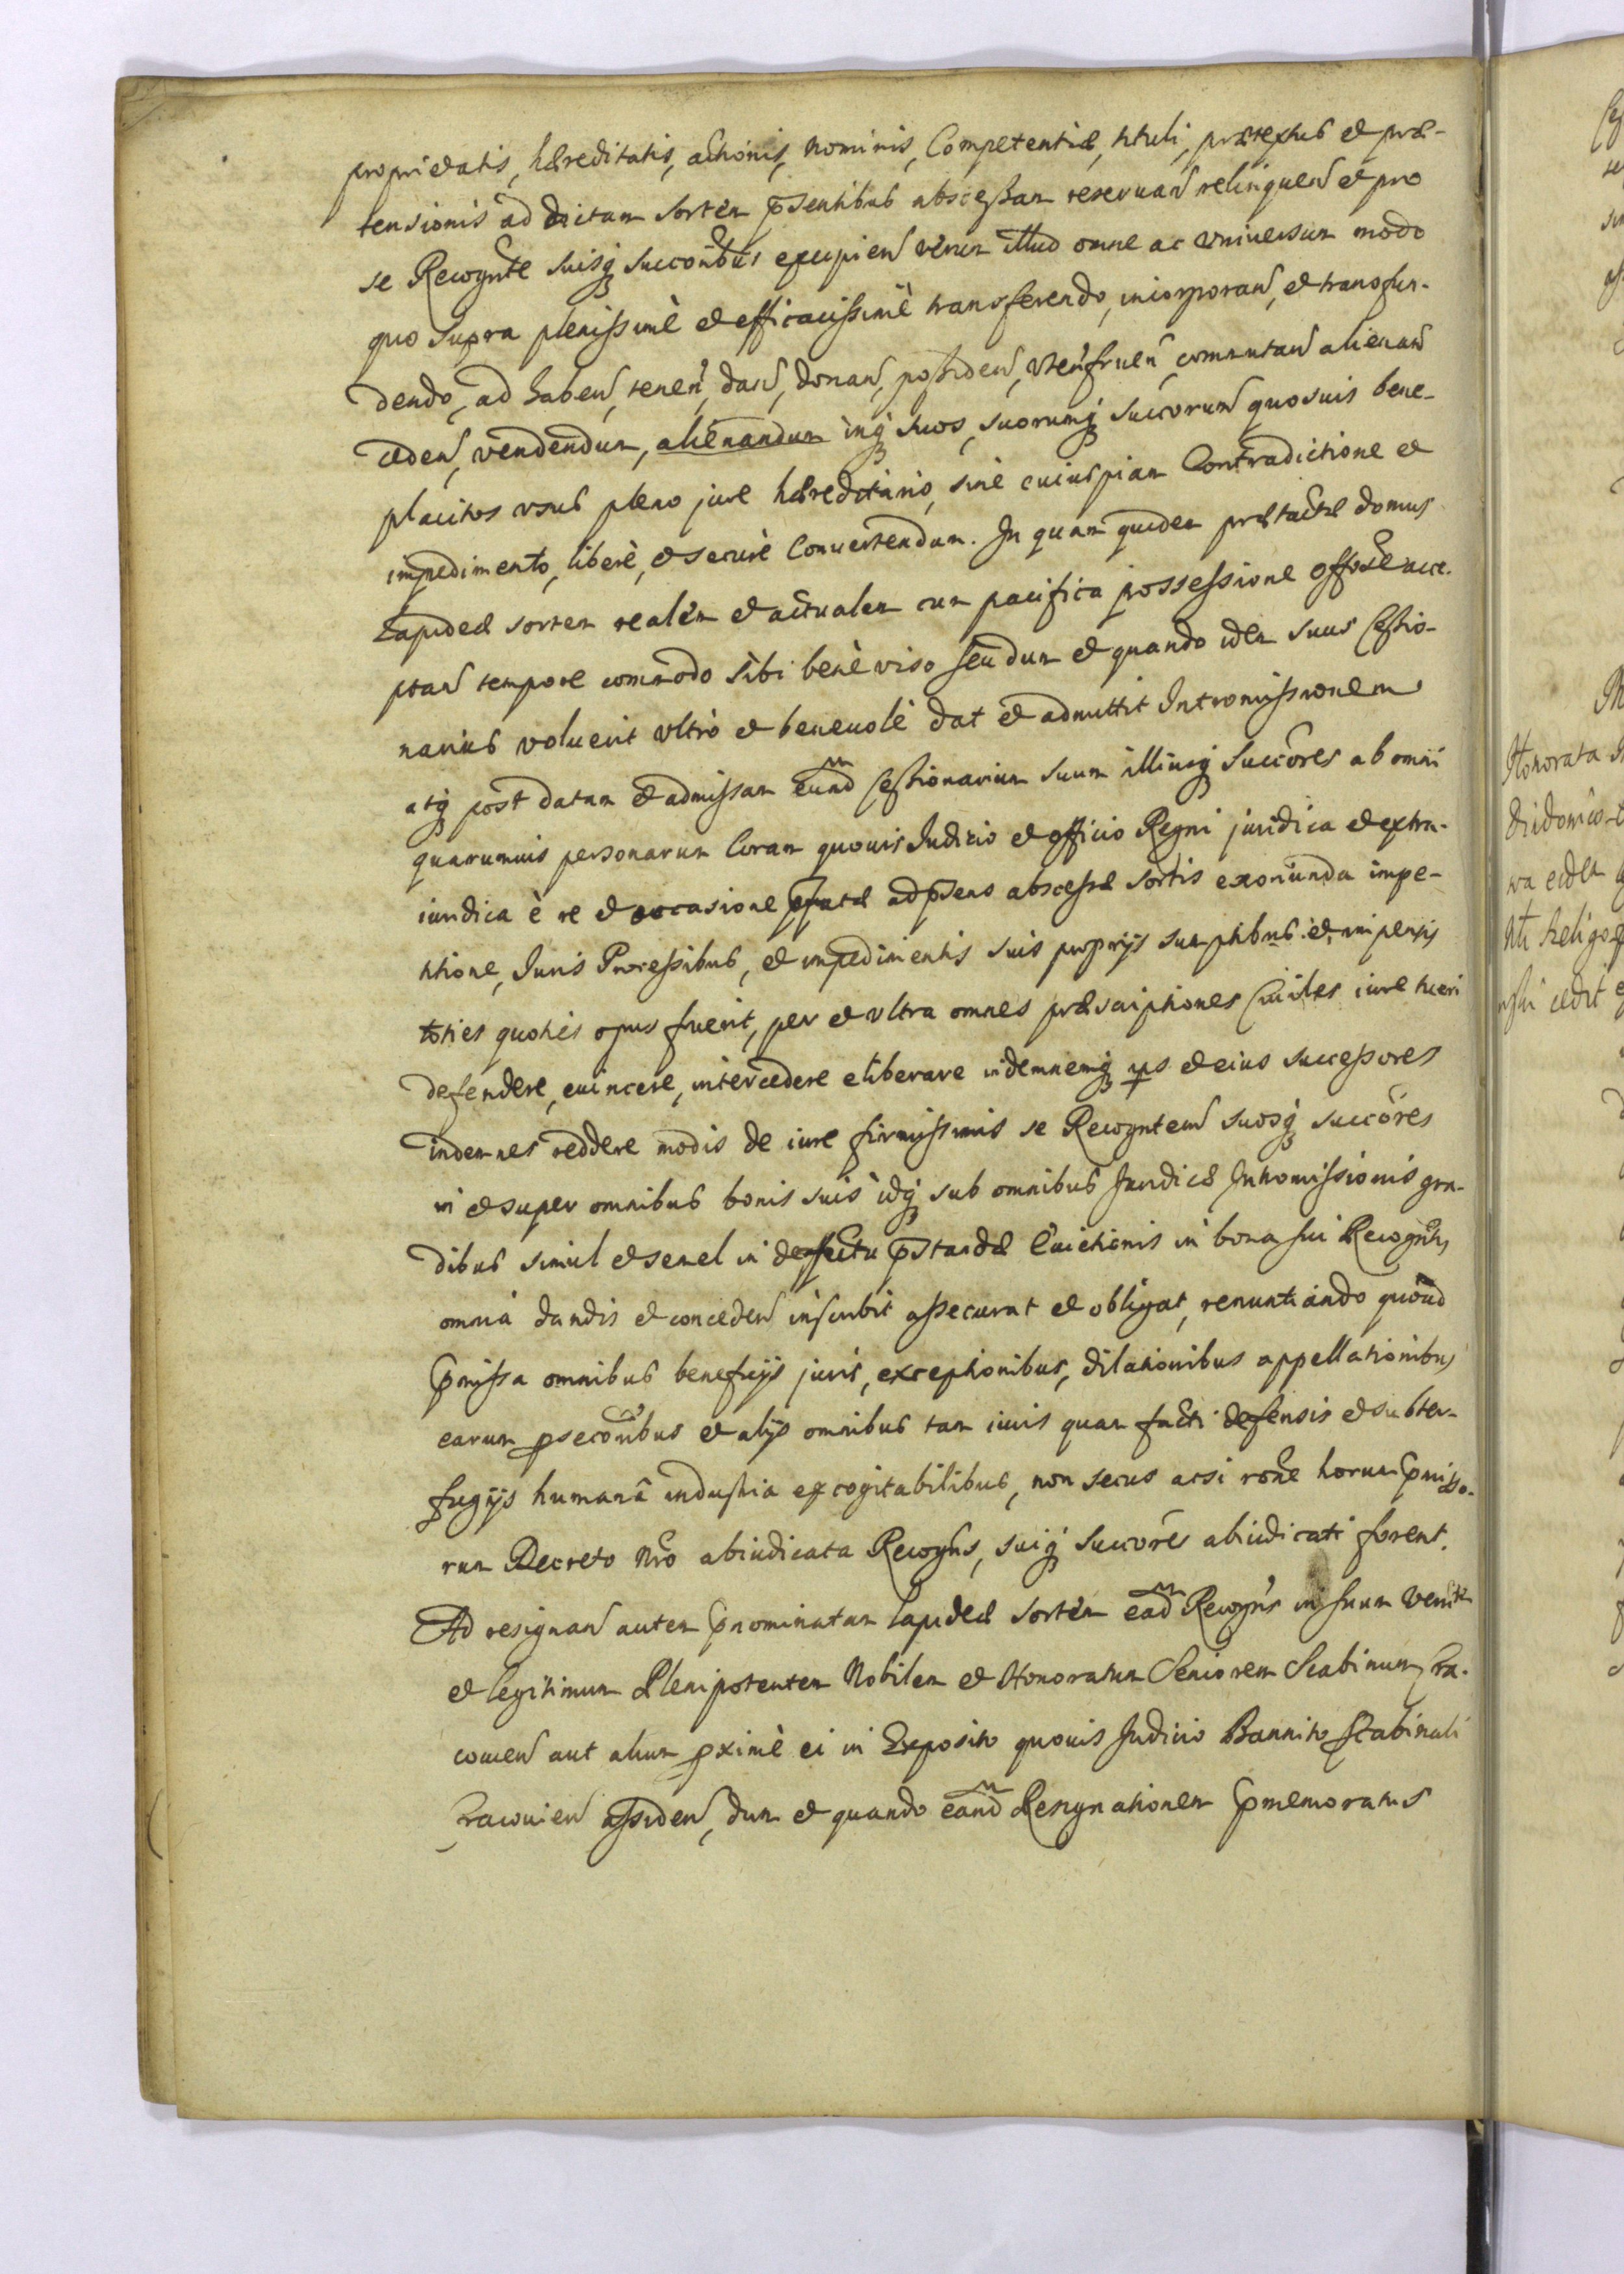 proprietatis, hæreditatis, actionis, nominis, Competentiæ, tituli, prætextus et præ-
tensionis ad dictam sortem p̄sentibus abscessam reservan̄ relinquen̄ et pro
se Recogn̄te suisq́ᷓ succōribus excipien̄ verum illud omne ac vniuersum modo
quo supra plenissimè et efficacissimè transferendo, incorporan̄, et transfun-
dendo, ad haben̄, tenen̄, dan̄, donan̄, possiden̄, vten̄fruen̄ commutan̄ alienan̄
ceden̄, vendendum, alienandum inq́ suos, suorumq́ succorum̄ quosuis bene-
placitos vsus pleno jure hæreditario, sine cuiuspiam Contradictione et
impedimento, liberè, et securè Conuertendam. In quam quidem prætactæ domus
Lapideæ sortem realem et actualem cum pacifica possessione offosæ acce-
ptan̄ tempore commodo sibi benè viso seu dum et quando idem suus Cessio-
narius voluerit vltrò et beneuolè dat et admittit Intromissionem
atq́ post datam et admissam eund̄ Cessionarium suum illiusq́ Succōres ab omni
quarumuis personarum Coram quouis Iudicio et officio Regni juridica et extra-
iuridica è re et occasione p̄fatæ ad p̄sens abscessæ sortis exoriunda impe-
titione, Iuris Processibus, et impedimentis suis proprijs sumptibus et impensis
toties quoties opus fuerit, per et vltra omnes præscriptiones Ciuiles iure tueri
defendere, euincere, intercedere eliberare indemnemq́ ips et eius successores
indemnes reddere modis de iure firmissimis se Recogntem̄ suosq́ succōres
in et super omnibus bonis suis idq́ sub omnibus Juridicæ Intromissionis gra-
dibus simul et semel in deffectu p̄standæ Euictionis in bona sui Recogn̄tis
omnia dandis et conceden̄ inscribit assecurat et obligat, renuntiando quoad
p̄missa omnibus beneficijs juris, exceptionibus, dilationibus appellationibus
earum psecōnibus et alijs omnibus tam iuris quam facti defensis et subter-
fugijs humanâ industria excogitabilibus, non secus acsi rōne horum p̄misso-
rum Decreto nr̄o abiudicata Recogn̄s, suiq́ succōres abiudicati forent.
Ad resignan̄ autem p̄nominatam Lapideæ sortem ead̄ Recogn̄s in suum verum
et legitimum Plenipotentem Nobilem et Honoratum Seniorem Scabinum Cra-
couien̄ aut alium pximè ei in Exposito quouis Judicio Bannito Scabinali
Cracouien̄ assiden̄, dum et quando eand̄ Resignationem p̄memoratus
Honorata